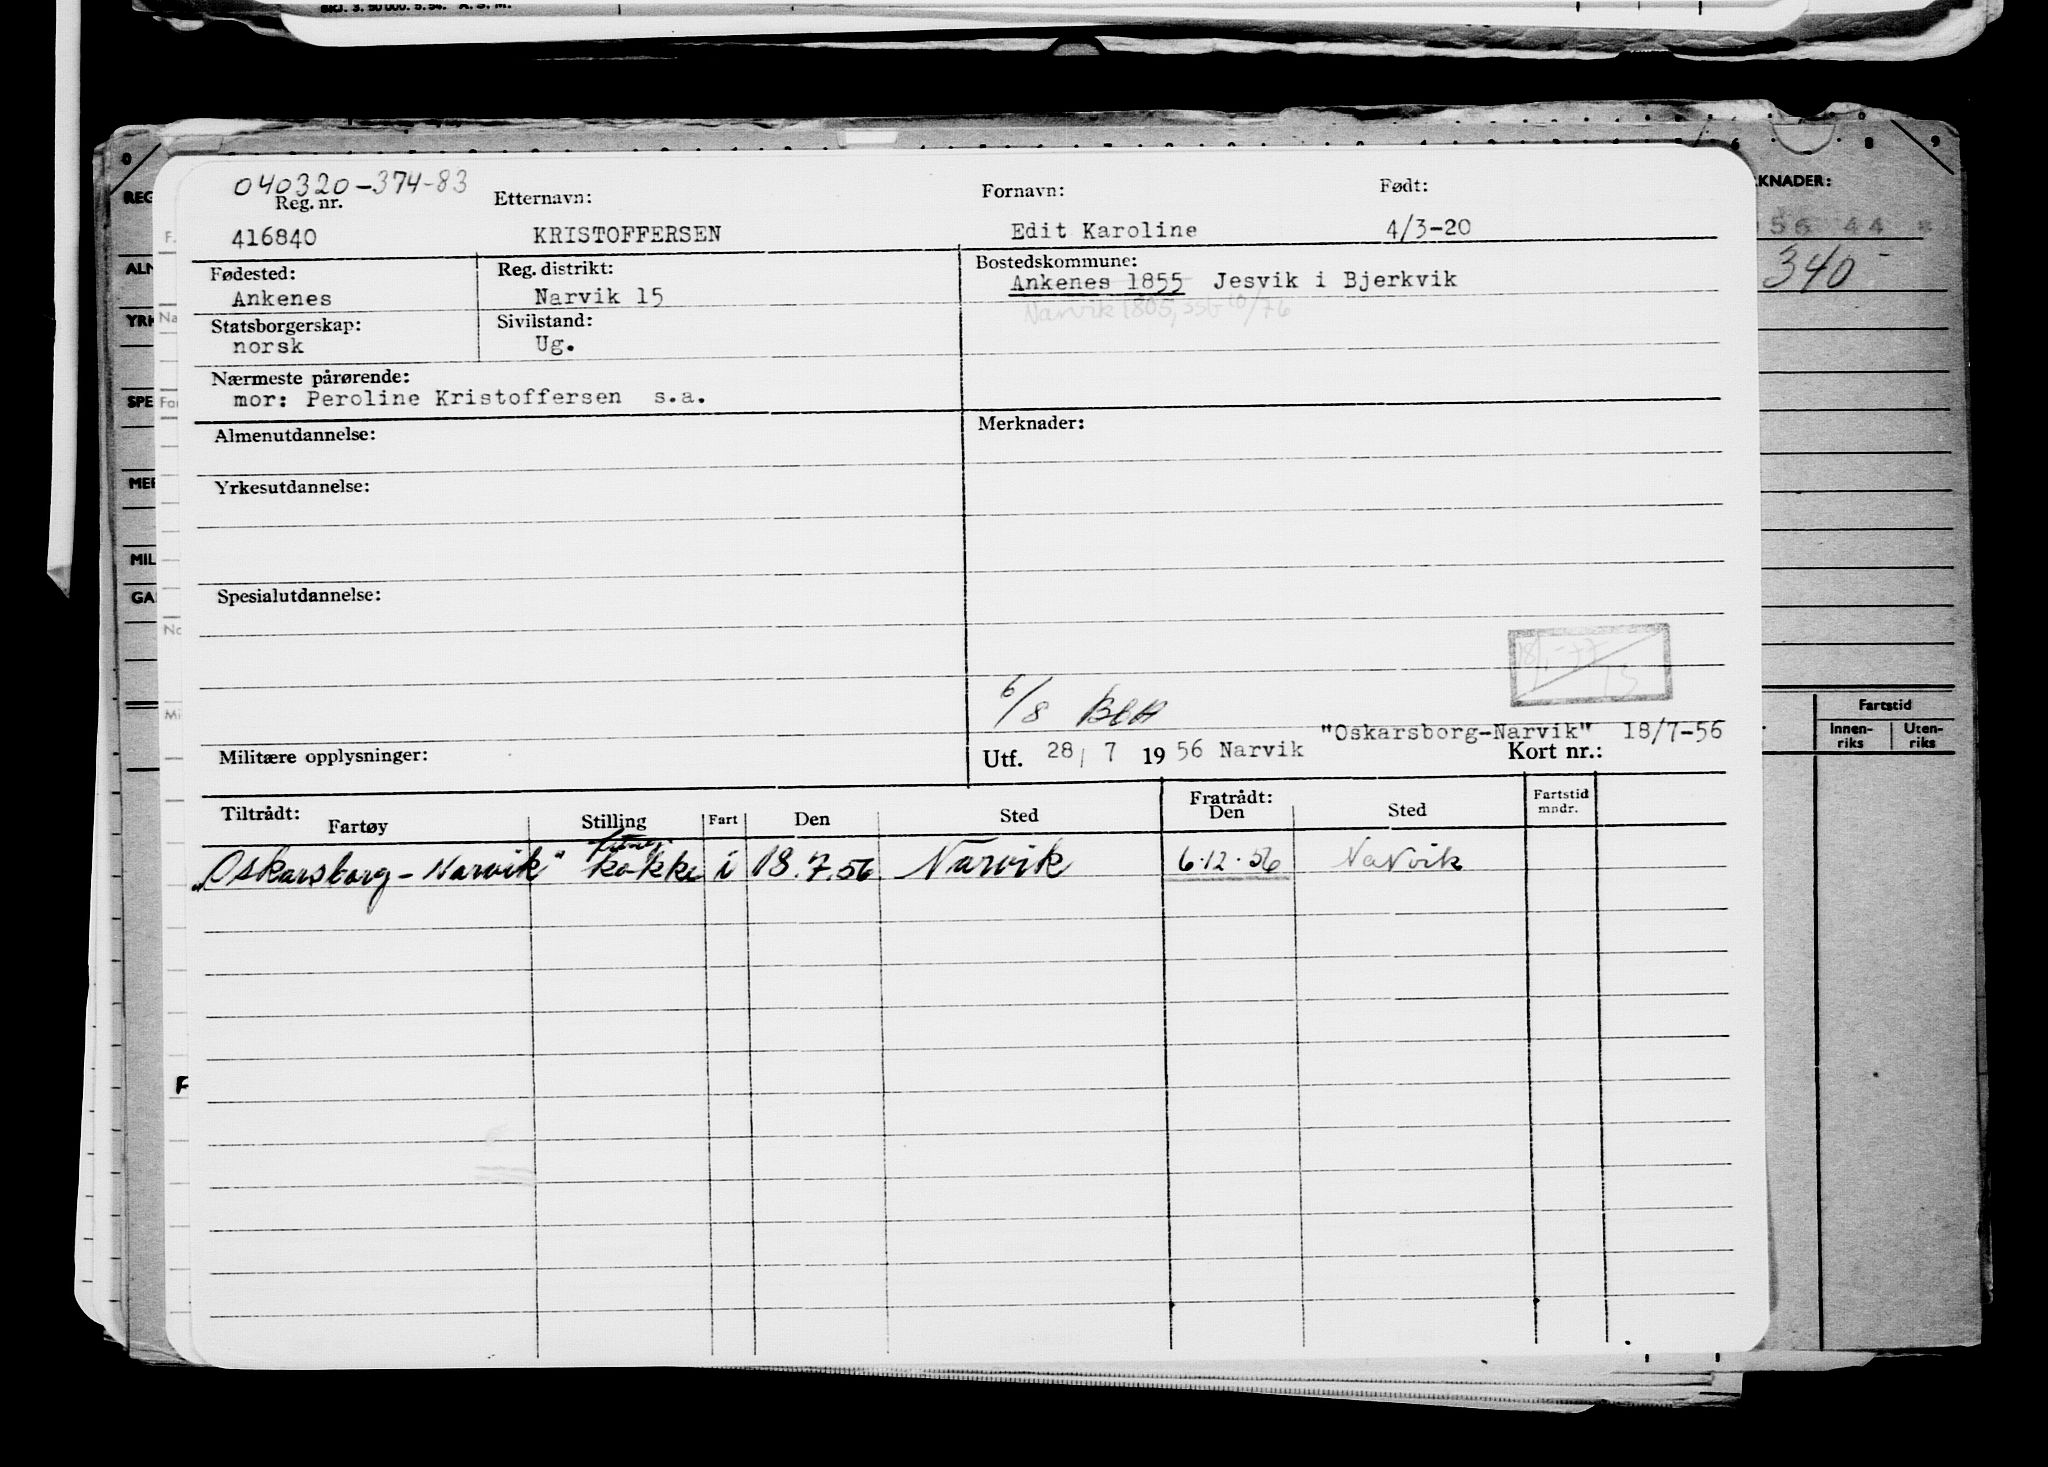 BKJ. 3. 50 000. 5. 54. A. S. M.
040320-374-83
Reg. nr. Etternavn: Fornavn: Født:
416840 KRISTOFFERSEN Edit Karoline 4/3-20
Fødested: Reg. distrikt: Bostedskommune:
Ankenes Narvik 15 Ankenes 1855 Jesvik i Bjerkvik
Narvik 1805, 10/76
Statsborgerskap: Sivilstand:
norsk Ug.
Nærmeste pårørende:
mor: Peroline Kristoffersen s.a.
Almenutdannelse: Merknader:
Yrkesutdannelse:
Spesialutdannelse:
6/8
"Oskarsborg-Narvik" 18/7-56
Militære opplysninger: Utf. 28/7 1956 Narvik Kort nr.:
Tiltrådt: Fratrådt: Fartstid
Fartøy Stilling Fart Den Sted Den Sted mndr.
"Oskarsborg-Narvik" kokke i 18.7.56 Narvik 6.12.56 Narvik
REG
ALM
YRK
SPE
MER
MIL
GA
F.
Na
For
No
Mi
F
KNADER:
56 44
340-
Fartstid
Innen-
riks
Uten-
riks